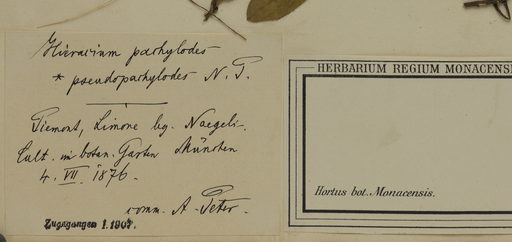 Hieracium pachylodes
* pseudopachylodes N. P.
Piemont, Limone leg. Naegeli.
Cult. in botan. Garten München
4. VII. 1876.
comm. A. Peter.
Zugegangen 1.1907.
HERBARIUM REGIUM MONACENS
Hortus bot. Monacensis.